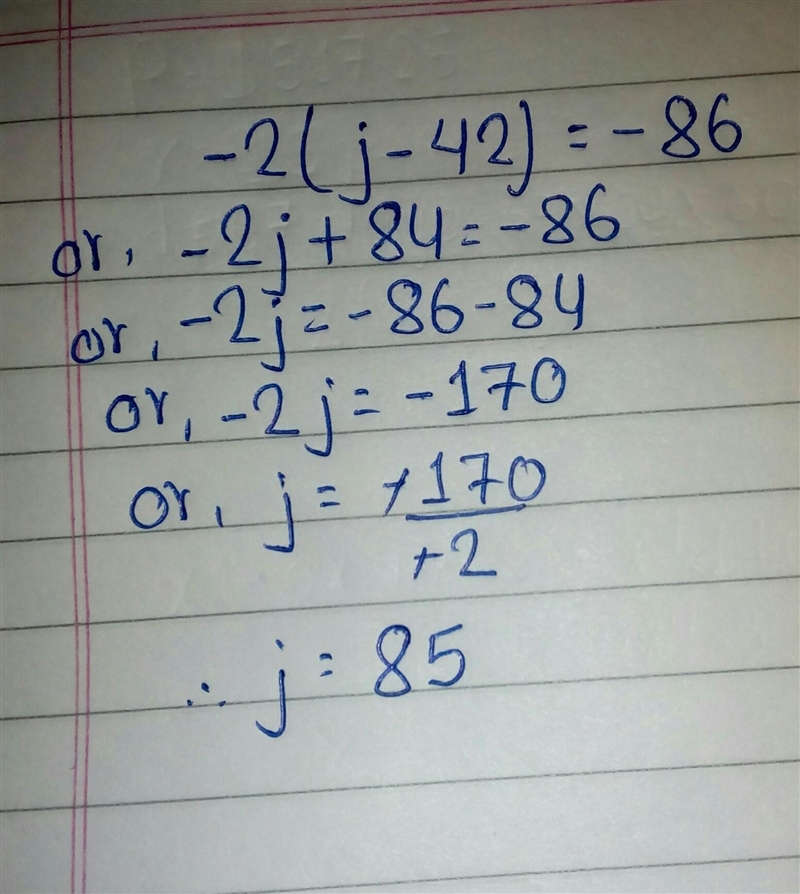 -2(j-42) = -86
or, -2j + 84 = -86
or, -2j = -86-84
or, -2j = -170
or, j = -170
-2
∴ j = 85